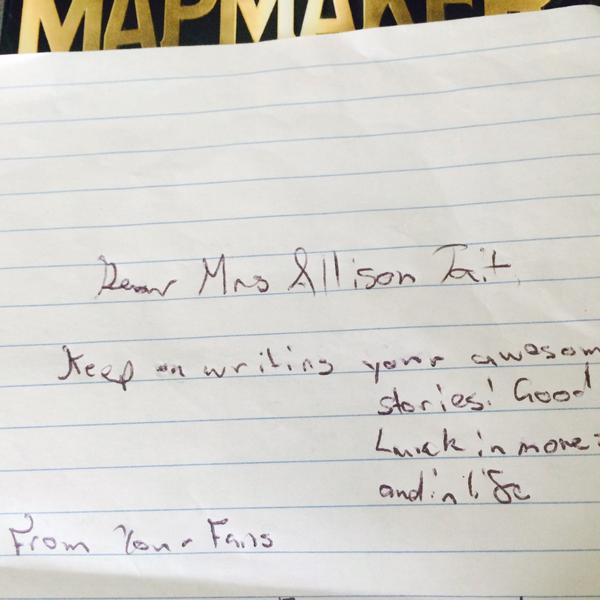 MAPMAKER
Dear Mrs Allison Tait,
Keep on writing your awesom
stories! Good
Luck in more
and in life
From Your Fans